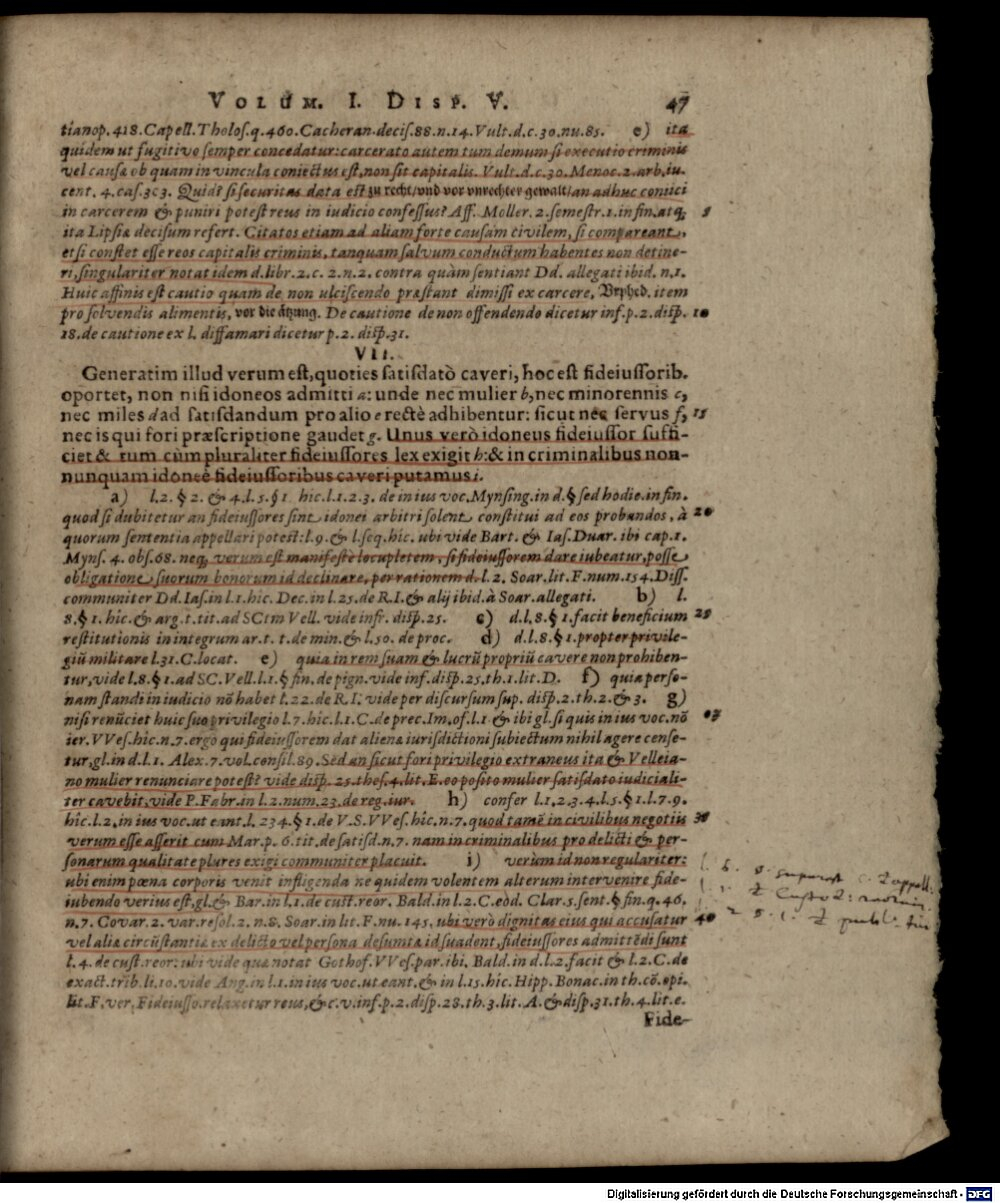 VOLUM. I. DISP. V. 47
tianop. 418. Capell. Tholos. q. 460. Cacheran. decis. 88. n. 14. Vult. d. c. 30. nu. 85. e) ita
quidem ut fugitivo semper concedatur: carcerato autem tum demum si executio criminis
vel causæ ob quam in vincula coniectus est, non sit capitalis. Vult. d. c. 30. Menoc. 2. arb. iu.
cent. 4. cas. 303. Quid? si securitas data est zu recht/und vor vnrechter gewalt/an adhuc coniici
in carcerem & puniri potest reus in iudicio confessus? Aff. Moller. 2. semestr. 1. in fin. atq; 5
ita Lipsiæ decisum refert. Citatos etiam ad aliam forte causam civilem, si compareant,
etsi constet esse reos capitalis criminis, tanquam salvum conductum habentes non detine-
ri, singulariter notat idem d. libr. 2. c. 2. n. 2. contra quàm sentiant Dd. allegati ibid. n. 1.
Huic affinis est cautio quam de non ulciscendo præstant dimissi ex carcere, Vrphed. item
pro solvendis alimentis, vor die ätzung. De cautione de non offendendo dicetur inf. p. 2. disp. 10
18. de cautione ex l. diffamari dicetur p. 2. disp. 31.
VII.
Generatim illud verum est, quoties satisdatò caveri, hoc est fideiussorib.
oportet, non nisi idoneos admitti a: unde nec mulier b, nec minorennis c,
nec miles d ad satisdandum pro alio e rectè adhibentur: sicut nec servus f, 15
nec is qui fori præscriptione gaudet g. Unus verò idoneus fideiussor suffi-
ciet & tum cùm pluraliter fideiussores lex exigit h: & in criminalibus non-
nunquam idoneè fideiussoribus caveri putamus i.
a) l. 2. § 2. & 4. l. 5. § 1. hic. l. 1. 2. 3. de in ius voc. Mynsing. in d. § sed hodie. in fin.
quod si dubitetur an fideiussores sint idonei arbitri solent constitui ad eos probandos, à 20
quorum sententia appellari potest: l. 9. & l. seq. hic. ubi vide Bart. & Ias. Duar. ibi cap. 1.
Myns. 4. obs. 68. neq, verum est manifestè locupletem, si fideiussorem dare iubeatur, posse
obligatione suorum bonorum id declinare, per rationem d. l. 2. Soar. lit. F. num. 154. Diss.
communiter Dd. Ias. in l. 1. hic. Dec. in l. 25. de R. I. & alij ibid. à Soar. allegati. b) l.
8. § 1. hic. & arg. t. tit. ad SCtm Vell. vide infr. disp. 25. c) d. l. 8. § 1. facit beneficium 25
restitutionis in integrum ar. t. t. de min. & l. 50. de proc. d) d. l. 8. § 1. propter privile-
giũ militare l. 31. C. locat. e) quia in rem suam & lucrũ propriũ cavere non prohiben-
tur, vide l. 8. § 1. ad SC. Vell. l. 1. § fin. de pign. vide inf. disp. 25. th. 1. lit. D. f) quia perso-
nam standi in iudicio nõ habet l. 22. de R. I. vide per discursum sup. disp. 2. th. 2. & 3. g)
nisi renũciet huic suo privilegio l. 7. hîc. l. 1. C. de prec. Im. of. l. 1 & ibi gl. si quis in ius voc. nõ
ier. VVes. hic. n. 7. ergo qui fideiussorem dat alienæ iurisdictioni subiectum nihil agere cense-
tur, gl. in d. l. 1. Alex. 7. vol. consil. 89. Sed an sicut fori privilegio extraneus ita & Velleia-
no mulier renunciare potest? vide disp. 25. thes. 4. lit. E. eo posito mulier satisdato iudiciali-
ter cavebit, vide P. Fabr. in l. 2. num. 23. de reg. iur. h) confer l. 1. 2. 3. 4. l. 5. § 1. l. 7. 9.
hîc. l. 2. in ius voc. ut eant. l. 234. § 1. de V. S. VVes. hîc. n. 7. quod tamẽ in civilibus negotiis
verum esse asserit cum Mar. p. 6. tit. de satisd. n. 7. nam in criminalibus pro delicti & per-
sonarum qualitate plures exigi communiter placuit. i) verùm id non regulariter:
ubi enim pœna corporis venit infligenda ne quidem volentem alterum intervenire fide-
iubendo verius est, gl. & Bar. in l. 1. de cust. reor. Bald. in l. 2. C. eod. Clar. 5. sent. § fin. q. 46.
n. 7. Covar. 2. var. resol. 2. n. 8. Soar. in lit. F. nu. 145. ubi verò dignitas eius qui accusatur 40
vel aliæ circũstantiæ ex delicto vel persona desumtæ id suadent, fideiussores admittẽdi sunt
l. 4. de cust. reor: ubi vide quæ notat Gothof. VVes. par. ibi. Bald. in d. l. 2. facit & l. 2. C. de
exact. trib. li. 10. vide Ang. in l. 1. in ius voc. ut eant. & in l. 15. hic. Hipp. Bonac. in th. cõ. opi.
lit. F, ver, Fideiusso. relaxetur reus, & c. v. inf. p. 2. disp. 28. th. 3. lit. A. & disp. 31. th. 4. lit. e.
Fide-
Digitalisierung gefördert durch die Deutsche Forschungsgemeinschaft - DFG